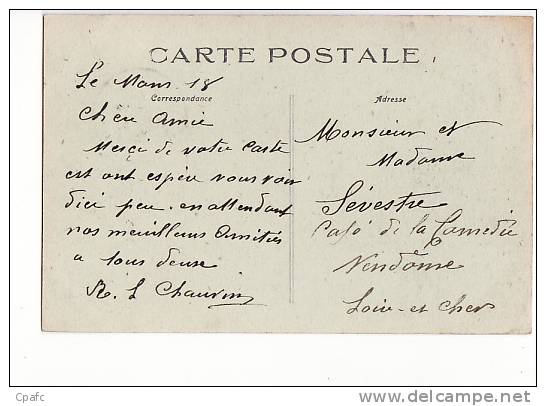 CARTE POSTALE
Le Mans 18
Correspondance
Adresse
Chère Amie
Merçi de votre Carte
est ont espère vous voir
dici peu. en attendant
nos meuilleurs Amitiés
a tous deuse
R. L Chauvin
Monsieur et
Madame
Sévestre
Café de la Comedie
Vendôme
Loir-et Cher
Cpafc
delcampe.net